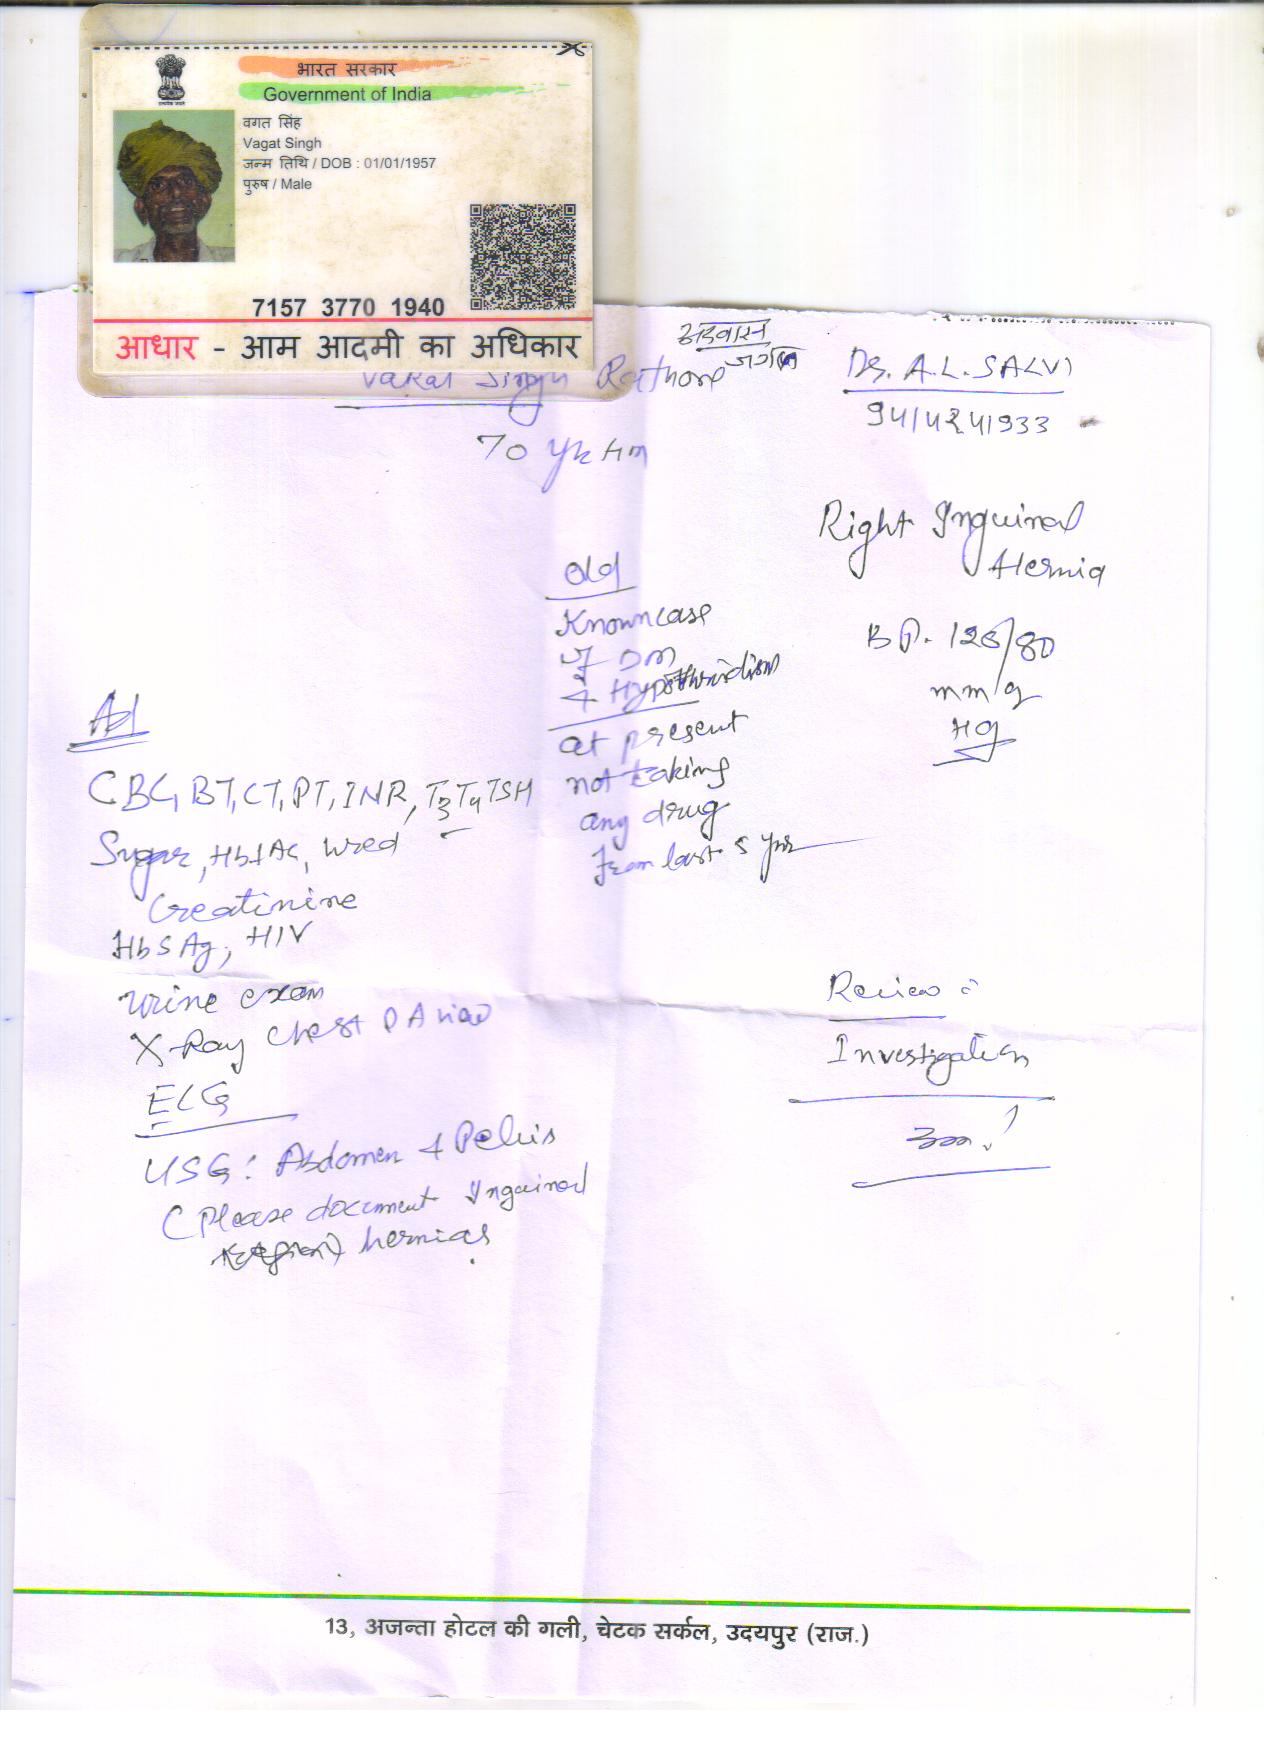 भारत सरकार
Government of India
वगत सिंह
Vagat Singh
जन्म तिथि / DOB : 01/01/1957
पुरुष / Male
7157 3770 1940
आधार - आम आदमी का अधिकार
Vakat Singh Rathore
70 yr Hm
Dr. A.L. SALVI
9414241933
Right Inguinal
Hernia
BP. 126/80
mm/g
Hg
Old
Known case
of DM
+ Hypothyroidism
at present
not taking
any drug
from last 5 yrs
Ad
CBC, BT, CT, PT, INR, T3 T4 TSH
Sugar, HbA1c, Urea
Creatinine
HbSAg, HIV
Urine exam
X-Ray Chest PA view
ECG
USG: Abdomen + Pelvis
(Please document Inguinal
hernias
Review c
Investigation
13, अजन्ता होटल की गली, चेटक सर्कल, उदयपुर (राज.)